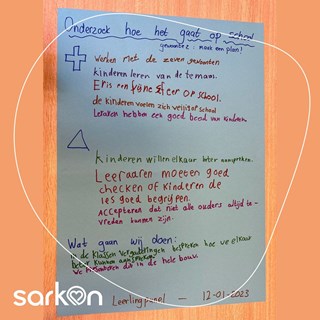 Onderzoek hoe het gaat op school
gewoontes : maak een plan?
werken met de zeven gewoonten
kinderen leren van de temams.
Er is een fijne sfeer op school.
de kinderen voelen zich veilig op school
Leraken hebben een goed beeld van kinderen.
kinderen willen elkaar beter aanspreken.
Leeraaren moeten goed
checken of kinderen de
les goed begrijpen.
ACCepteren dat niet alle ouders altijd te-
vreden kunnen zijn.
Wat gaan wij doen:
in de klassen vergaderingen bespreken hoe we elkaar
beter kunnen aanspreken.
We in dit in de hele bouw.
Leerlingpanel — 12-01-2023
sarkon